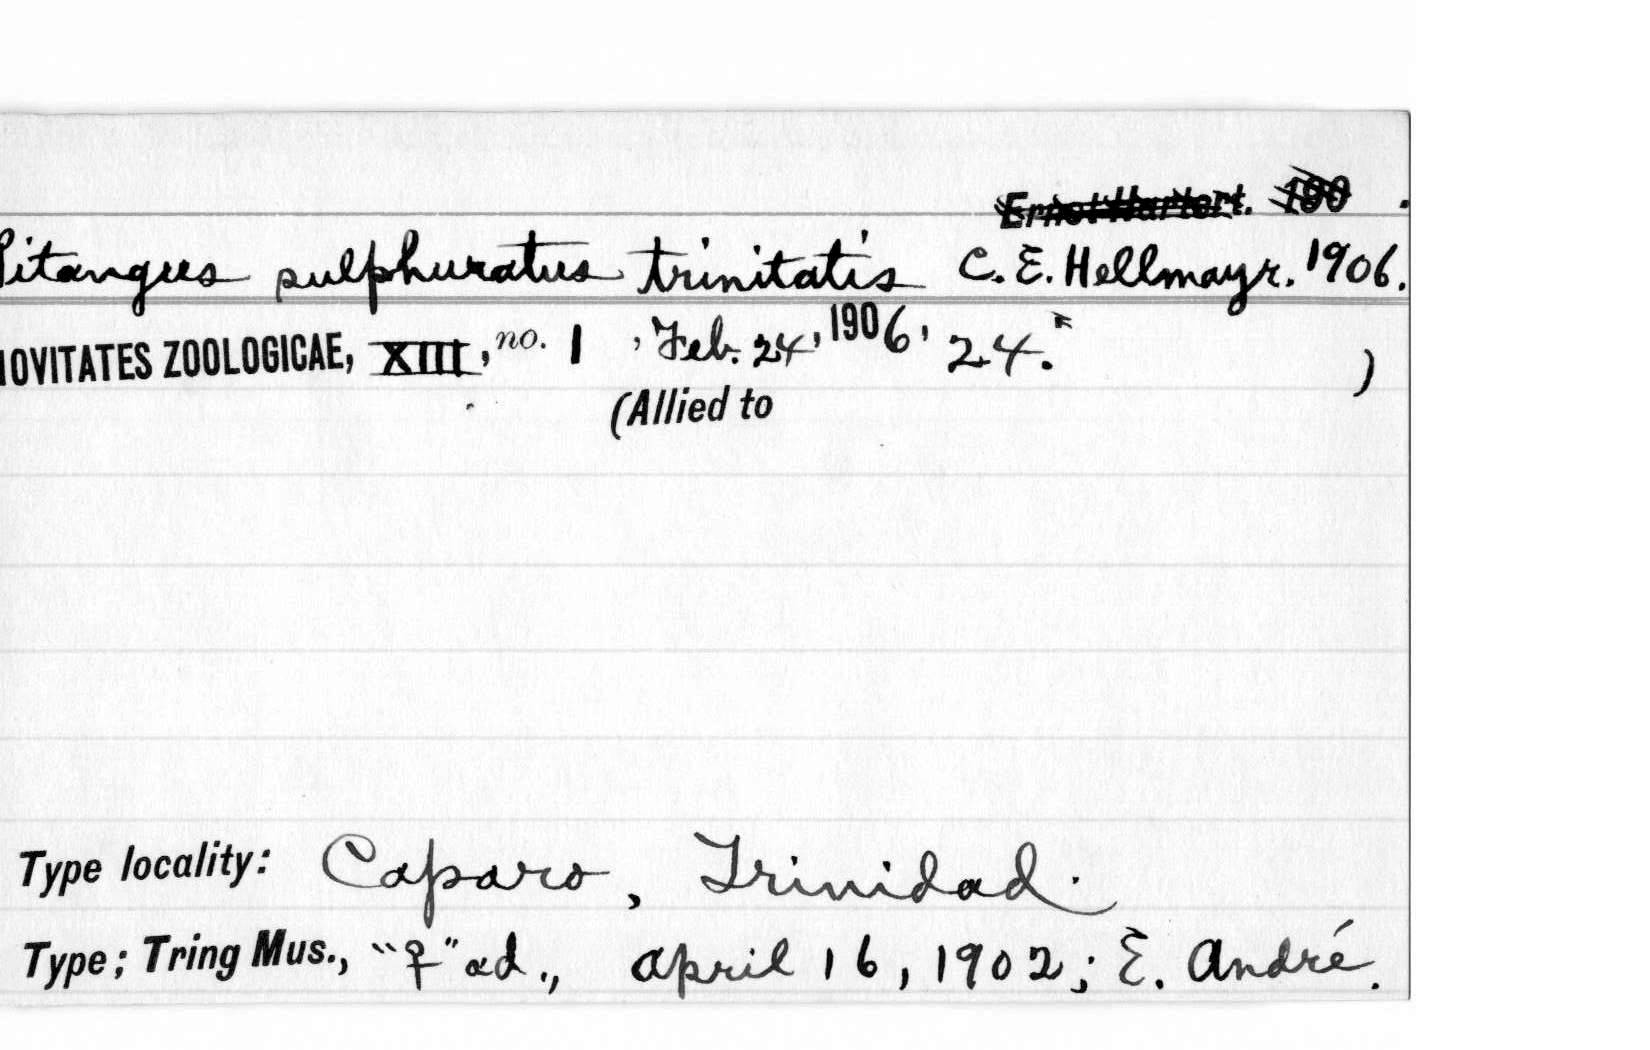 Ernst Hartert. 190 .
Pitangus sulphuratus trinitatis C. E. Hellmayr. 1906.
NOVITATES ZOOLOGICAE, XIII, no. 1 , Feb. 24, 1906, 24.*
(Allied to )
Type locality: Caparo, Trinidad.
Type; Tring Mus., "♀" ad., April 16, 1902; E. André.